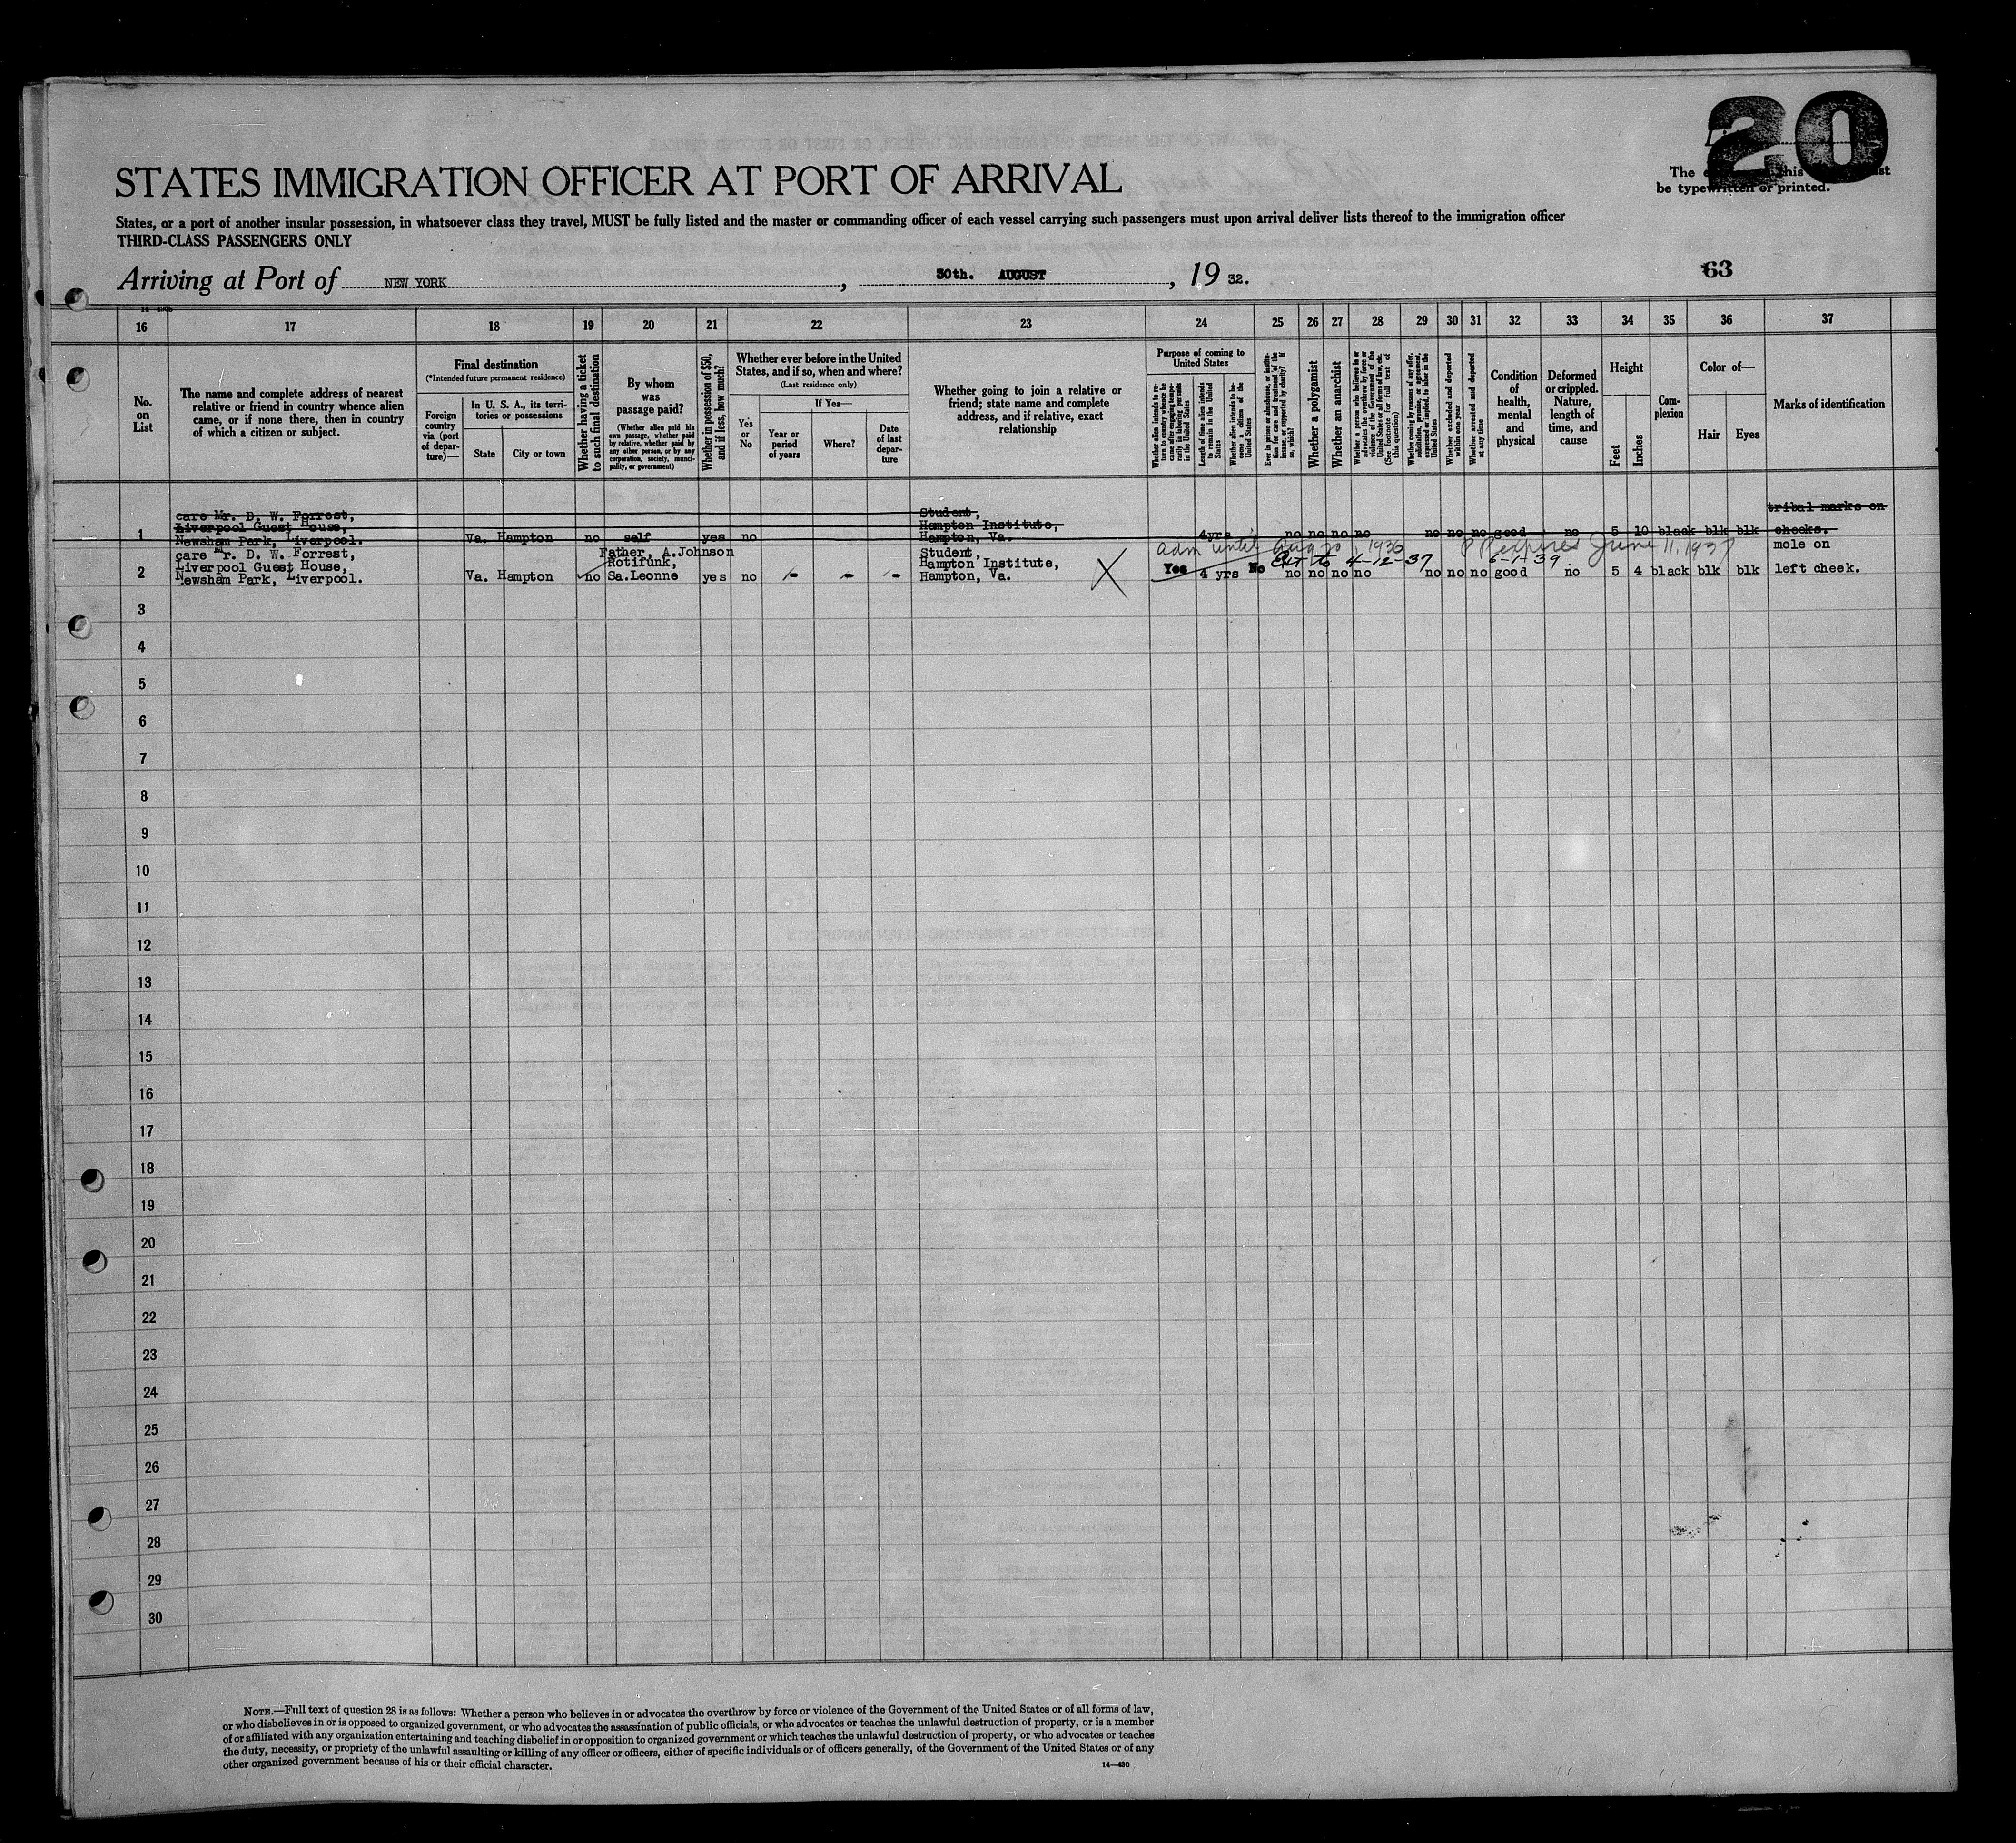 20
STATES IMMIGRATION OFFICER AT PORT OF ARRIVAL
The this
be typewritten or printed.
States, or a port of another insular possession, in whatsoever class they travel, MUST be fully listed and the master or commanding officer of each vessel carrying such passengers must upon arrival deliver lists thereof to the immigration officer
THIRD-CLASS PASSENGERS ONLY
Arriving at Port of NEW YORK, 30th. AUGUST, 19 32.
63
16 17 18 19 20 21 22 23 24 25 26 27 28 29 30 31 32 33 34 35 36 37
No. on List
The name and complete address of nearest relative or friend in country whence alien came, or if none there, then in country of which a citizen or subject.
Final destination
(*Intended future permanent residence)
Foreign country via (port of departure)—
In U. S. A., its territories or possessions
State
City or town
Whether having a ticket to such final destination
By whom was passage paid?
(Whether alien paid his own passage, whether paid by relative, whether paid by any other person, or by any corporation, society, municipality, or government)
Whether in possession of $50, and if less, how much?
Whether ever before in the United States, and if so, when and where?
(Last residence only)
Yes or No
If Yes—
Year or period of years
Where?
Date of last departure
Whether going to join a relative or friend; state name and complete address, and if relative, exact relationship
Purpose of coming to United States
Whether alien intends to return to country whence he came after engaging temporarily in laboring pursuits in the United States
Length of time alien intends to remain in the United States
Whether alien intends to become a citizen of the United States
Ever in prison or almshouse, or institution for care and treatment of the insane, or supported by charity? If so, which?
Whether a polygamist
Whether an anarchist
Whether a person who believes in or advocates the overthrow by force or violence of the Government of the United States or all forms of law, etc. (See footnote for full text of this question)
Whether coming by reasons of any offer, solicitation, promise, or agreement, expressed or implied, to labor in the United States
Whether excluded and deported within one year
Whether arrested and deported at any time
Condition of health, mental and physical
Deformed or crippled. Nature, length of time, and cause
Height
Feet
Inches
Complexion
Color of—
Hair
Eyes
Marks of identification
care Mr. D. W. Forrest, Student, tribal marks on
Liverpool Guest House, Hampton Institute,
1 Newsham Park, Liverpool. Va. Hampton no self yes no Hampton, Va. 4yrs no no no no no no no good no 5 10 black blk blk cheeks.
care Mr. D. W. Forrest, Father, A.Johnson Student, adm until Aug 30, 1936 June 11, 1937 mole on
Liverpool Guest House, Rotifunk, Hampton Institute, Ext to 4-12-37 6-1-39
2 Newsham Park, Liverpool. Va. Hampton no Sa.Leonne yes no - - - Hampton, Va. X Yes 4 yrs No no no no no no no no good no 5 4 black blk blk left cheek.
3
4
5
6
7
8
9
10
11
12
13
14
15
16
17
18
19
20
21
22
23
24
25
26
27
28
29
30
NOTE.—Full text of question 28 is as follows: Whether a person who believes in or advocates the overthrow by force or violence of the Government of the United States or of all forms of law,
or who disbelieves in or is opposed to organized government, or who advocates the assassination of public officials, or who advocates or teaches the unlawful destruction of property, or is a member
of or affiliated with any organization entertaining and teaching disbelief in or opposition to organized government or which teaches the unlawful destruction of property, or who advocates or teaches
the duty, necessity, or propriety of the unlawful assaulting or killing of any officer or officers, either of specific individuals or of officers generally, of the Government of the United States or of any
other organized government because of his or their official character.
14—430